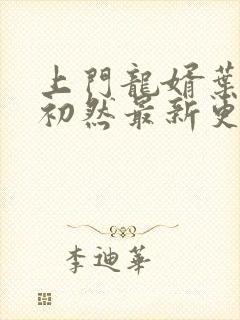 上門龍婿葉
初然最新更
李迪華